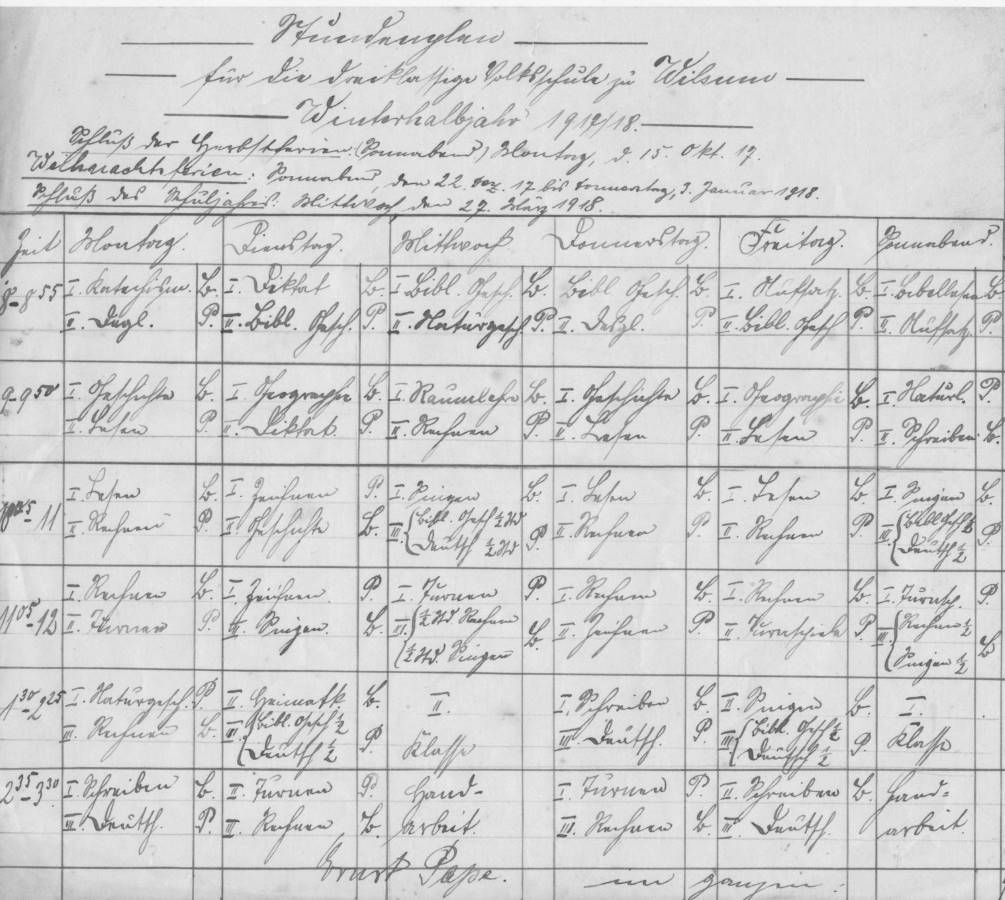 Stundenplan
für die dreiklassige Volksschule zu Wilsum
Winterhalbjahr 1917/18.
Schluß der Herbstferien: (Sonnabend) Montag, d. 15. Okt. 17.
Weihnachtsferien: Sonnabend, den 22. Dez. 17 bis Donnerstag, 3. Januar 1918.
Schluß des Schuljahres: Mittwoch, den 27. März 1918.
Zeit Montag. Dienstag. Mittwoch Donnerstag. Freitag. Sonnabend.
8-8 55 I. Katechism. B. I. Diktat B. I Bibl. Gesch. B. Bibl. Gesch. B. I. Aufsatz B. I. Bibellesen B.
II. P. II. Bibl. Gesch. P. II. Naturgesch. P. II. P. II. Bibl. Gesch P. II. Aufsatz P.
9-9 50 I. Geschichte B. I. Geographie B. I Raumlehre B. I. Geschichte B. I. Geographie B. I. Naturl. P.
II. Lesen P. II. Diktat. P. II. Rechnen P. II. Lesen P. II. Lesen P. II. Schreiben B.
11 I. Lesen B. I. Zeichnen P. I. Singen B. I. Lesen B. I. Lesen B. I. Singen B.
II. Rechnen P. II. Geschichte B. III. { Bibl. Gesch ½ Std P. II. Rechnen P. II. Rechnen P. III. { Bibl. Gesch ½ P.
Deutsch ½ Std Deutsch ½
11 05-12 I. Rechnen B. I. Zeichnen P. I. Turnen P. I. Rechnen B. I. Rechnen B. I. Turnsp. P.
II. Turnen P. II. Singen. B. III. { ½ Std Rechnen B. II. Zeichnen P. II. Turnspiele P. III. { Rechnen ½ B
½ Std. Singen Singen ½
1 30-2 25 I. Naturgesch. P. II. Heimatk. B. II. I. Schreiben B. II. Singen B. I.
III. Rechnen B. III. { Bibl. Gesch ½ P. Klasse III. Deutsch. P. III. { Bibl. Gesch ½ P. Klasse
Deutsch ½ Deutsch ½
2 35-3 30 I. Schreiben B. II. Turnen P. Hand- I. Turnen P. II. Schreiben B. Hand=
III. Deutsch. P. III. Rechnen B. arbeit. III. Rechnen B. III. Deutsch. P. arbeit.
Ernst Pape. im ganzen: